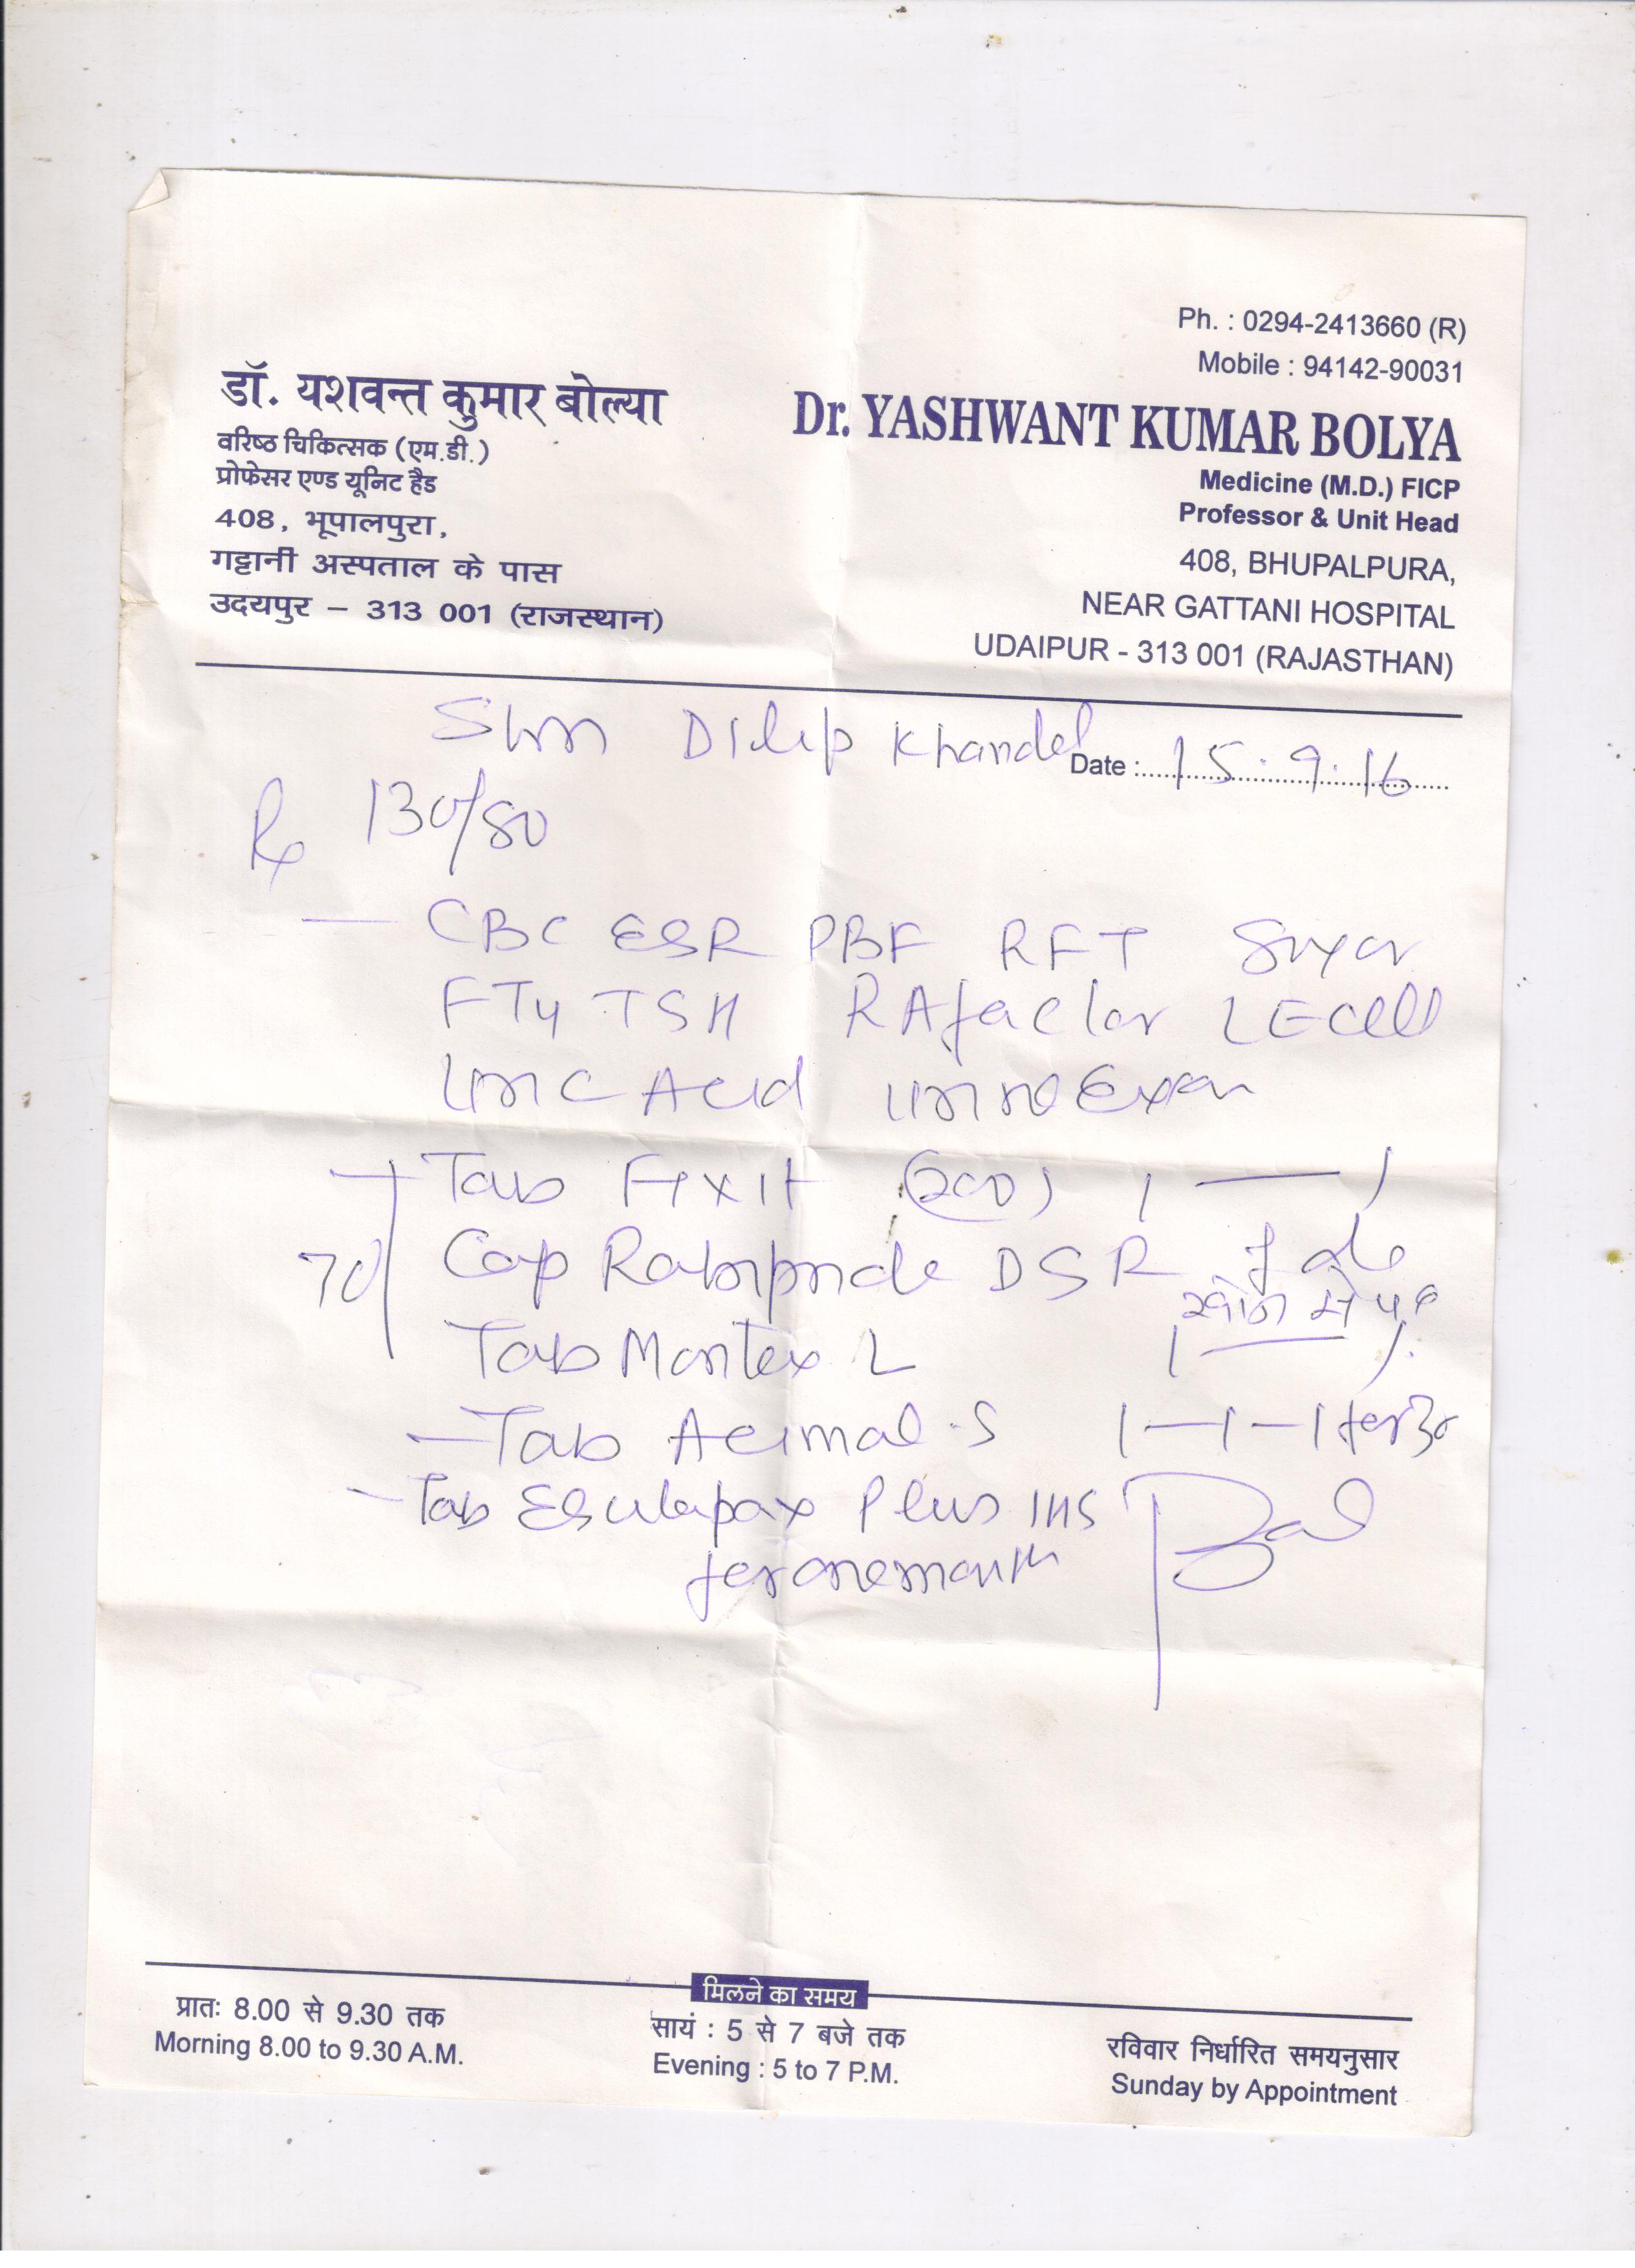 Ph. : 0294-2413660 (R)
Mobile : 94142-90031
डॉ. यशवन्त कुमार बोल्या
वरिष्ठ चिकित्सक (एम.डी.)
प्रोफेसर एण्ड यूनिट हैड
408, भूपालपुरा,
गट्टानी अस्पताल के पास
उदयपुर – 313 001 (राजस्थान)
Dr. YASHWANT KUMAR BOLYA
Medicine (M.D.) FICP
Professor & Unit Head
408, BHUPALPURA,
NEAR GATTANI HOSPITAL
UDAIPUR - 313 001 (RAJASTHAN)
Dilip Khandel
Date : 15.9.16
Rx 130/80
— CBC ESR PBF RFT Sugar
FT4 TSH RA factor LE cell
Uric Acid Urine Exam
Tab Fixit (200) 1 — 1
7d Cap Rabipride DSR
खाने से
Tab Montex L 1 — 1
— Tab Acimal-S 1 — 1 — 1 for 3d
— Tab Esulapax Plus 1HS
for one month
मिलने का समय
प्रातः 8.00 से 9.30 तक
Morning 8.00 to 9.30 A.M.
सायं : 5 से 7 बजे तक
Evening : 5 to 7 P.M.
रविवार निर्धारित समयनुसार
Sunday by Appointment